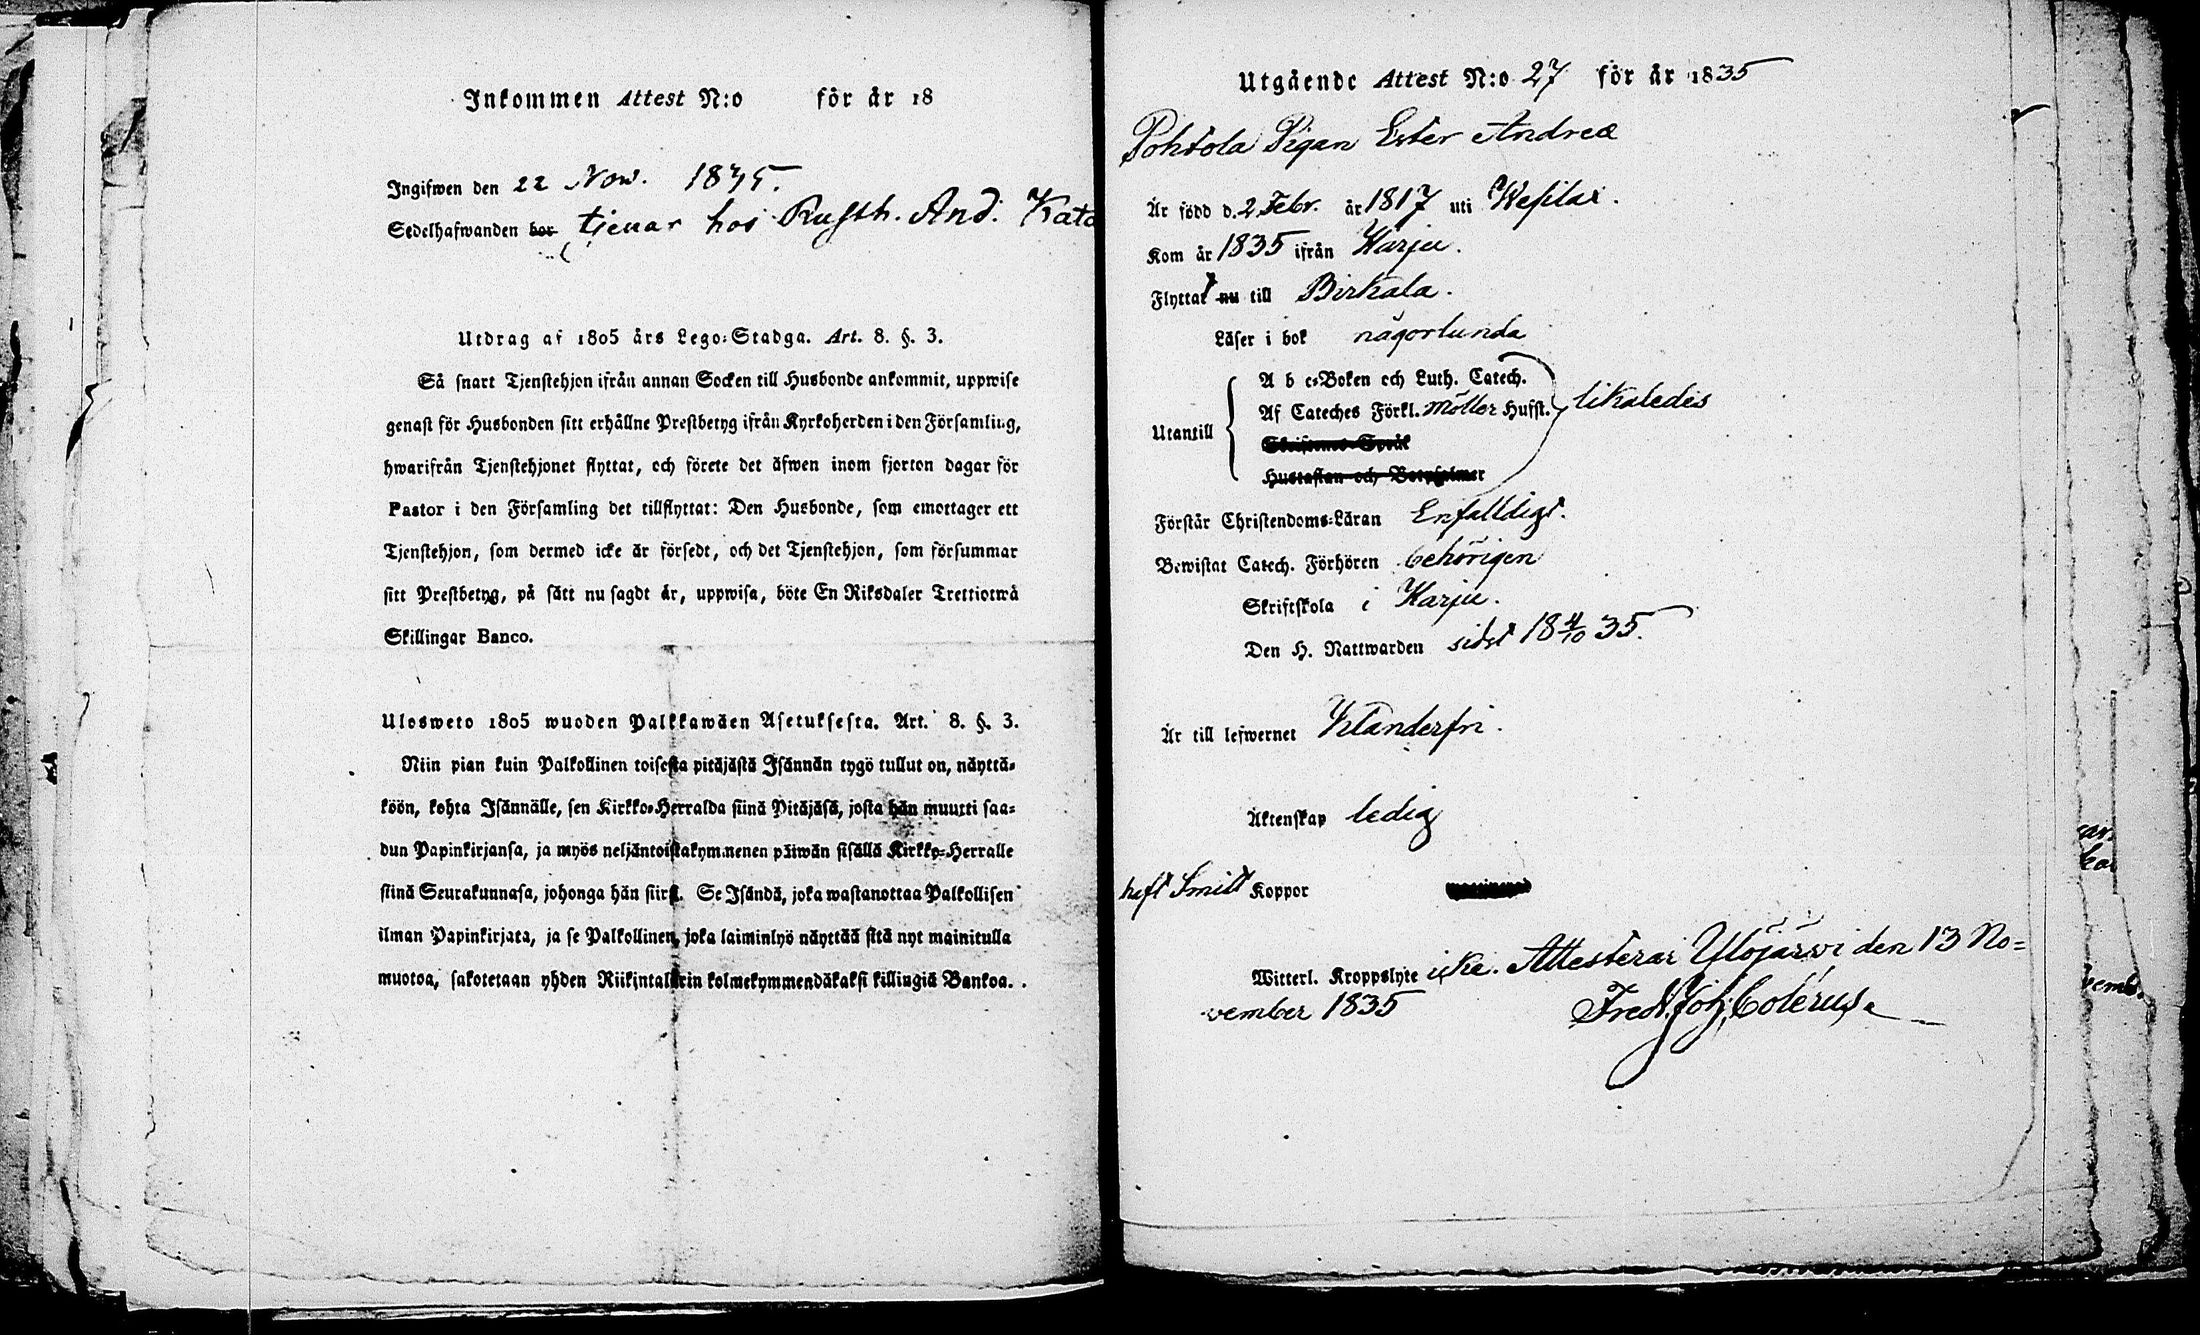 Inkommen Attest N:o för år 18
Ingifwen den 22 Nov. 1835.
Sedelhafwanden bor tjenar hos Rusth. And. Kato
Utdrag af 1805 års Lego-Stadga. Art. 8. §. 3.
Så snart Tjenstehjon ifrån annan Socken till Husbonde ankommit, uppwise
genast för Husbonden sitt erhållne Prestbetyg ifrån Kyrkoherden i den Församling,
hwarifrån Tjenstehjonet flyttat, och förete det äfwen inom fjorton dagar för
Pastor i den Församling det tillflyttat: Den Husbonde, som emottager ett
Tjenstehjon, som dermed icke är försedt, och det Tjenstehjon, som försummar
sitt Prestbetyg, på sätt nu sagdt är, uppwisa, böte En Riksdaler Trettiotwå
Skillingar Banco.
Ulosweto 1805 wuoden Palkkawäen Asetuksesta. Art. 8. §. 3.
Niin pian kuin Palkollinen toisesta pitäjästä Isännän tygö tullut on, näyttä-
köön, kohta Isännälle, sen Kirkko-Herralda siinä Pitäjäsä, josta hän muutti saa-
dun Papinkirjansa, ja myös neljäntoistakymmenen päiwän sisällä Kirkko-Herralle
siinä Seurakunnasa, johonga hän siirsi. Se Isändä, joka wastanottaa Palkollisen
ilman Papinkirjata, ja se Palkollinen, joka laiminlyö näyttää sitä nyt mainitulla
muotoa, sakotetaan yhden Riikintalarin kolmekymmendäkaksi killingiä Bankoa.
Utgående Attest N:o 27 för år 1835
Pohtola Pigan Ester Andreæ
Är född d. 2 Febr. år 1817 uti Wesilax.
Kom år 1835 ifrån Karju.
Flyttat nu till Birkala.
Läser i bok någorlunda
A b c-Boken och Luth. Catech.
Af Cateches Förkl. Möller Husft. likaledes
Utantill
Skriftenes Språk
Hustaflan och Botpsalmer
Förstår Christendoms-Läran Enfalldigt.
Bewistat Catech. Förhören behörigen
Skriftskola i Karju.
Den H. Nattwarden sidst 18 4/10 35.
Är till lefwernet Klanderfri.
Äktenskap ledig
haft Smitt Koppor
Witterl. Kroppslyte icke. Attesterar Ylöjärvi den 13 No=
vember 1835 Fredr. Joh. Colérus.